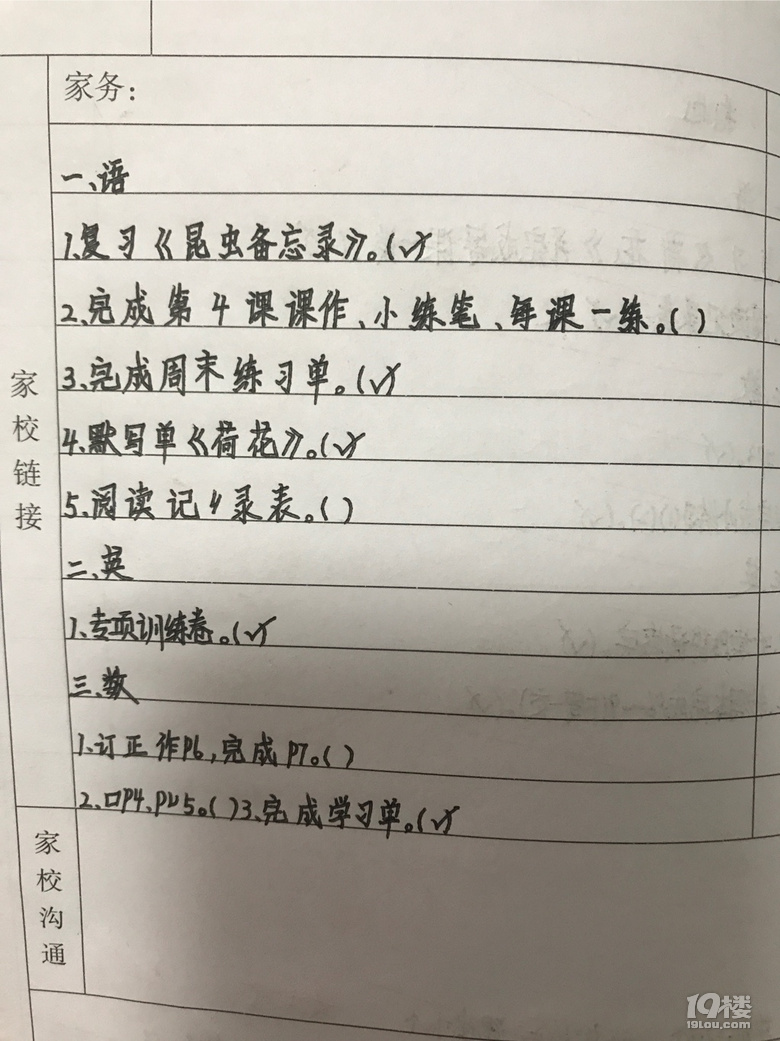 家务：
一、语
1.复习《昆虫备忘录》。(√)
2.完成第4课课作、小练笔、每课一练。( )
3.完成周末练习单。(√)
4.默写单《荷花》。(√)
5.阅读记录表。( )
二、英
1.专项训练卷。(√)
三、数
1.订正作P6,完成P7。( )
2.口P4、P5。( )3.完成学习单。(√)
家校链接
家校沟通
19楼
19lou.com